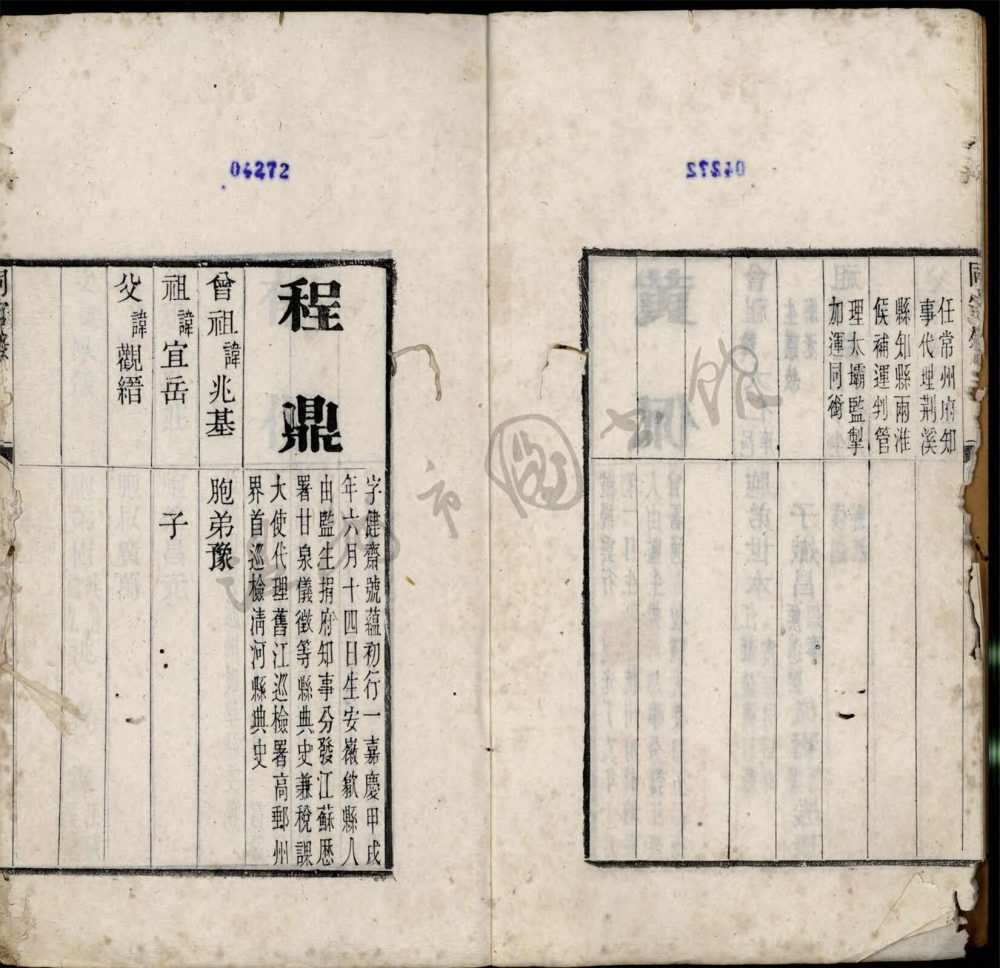 04272
同官錄
任常州府知
事代理荆溪
縣知縣兩淮
候補運判管
理太壩監掣
加運同銜
04272
程鼎
字健齋號蘊初行一嘉慶甲戌
年六月十四日生安徽歙縣人
由監生捐府知事分發江蘇歷
署甘泉儀徵等縣典史兼稅課
大使代理舊江巡檢署高郵州
界首巡檢淸河縣典史
曾祖諱兆基
胞弟豫
祖諱宜岳
子
父諱觀縉
同官錄
市圖書館